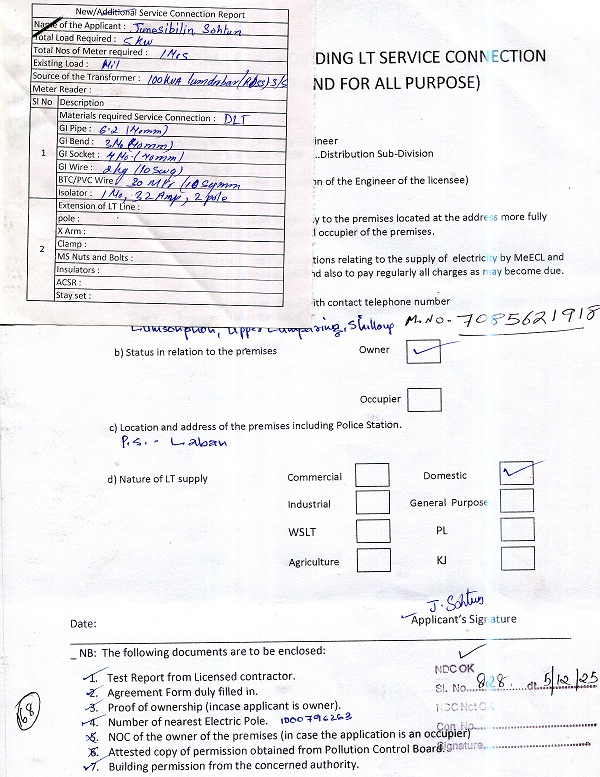 New/Additional Service Connection Report
Name of the Applicant : Junesibilin Sohtun
Total Load Required : 5 KW
Total Nos of Meter required : 1 No's
Existing Load : Nil
Source of the Transformer : 100KVA S/S
Meter Reader :
Sl No Description
Materials required Service Connection : DLT
GI Pipe : 6.2 (40mm)
GI Bend : 2 No (40mm)
1 GI Socket : 4 No. (40mm)
GI Wire : 2kg (10 swg)
BTC/PVC Wire : 30 (10 sqmm
Isolator : 1 No, 32 Amp, 2 pole
Extension of LT Line :
pole :
X Arm :
2 Clamp :
MS Nuts and Bolts :
Insulators :
ACSR :
Stay set :
DING LT SERVICE CONNECTION
ND FOR ALL PURPOSE)
ineer
..Distribution Sub-Division
on of the Engineer of the licensee)
y to the premises located at the address more fully
l occupier of the premises.
tions relating to the supply of electricity by MeECL and
nd also to pay regularly all charges as may become due.
ith contact telephone number
Upper Lumparing, Shillong M.NO- 7085621918
b) Status in relation to the premises Owner
Occupier
c) Location and address of the premises including Police Station.
P.S. - Laban
d) Nature of LT supply Commercial Domestic
Industrial General Purpose
WSLT PL
Agriculture KJ
J. Sohtun
Date: Applicant's Signature
_NB: The following documents are to be enclosed:
1. Test Report from Licensed contractor.
2. Agreement Form duly filled in.
3. Proof of ownership (incase applicant is owner).
4. Number of nearest Electric Pole. 1000796263
5. NOC of the owner of the premises (in case the application is an occupier)
6. Attested copy of permission obtained from Pollution Control Board.
7. Building permission from the concerned authority.
NDC OK
Sl. No. 828 dt. 5/12/25
NDC Not OK
Con. No.
Signature
168